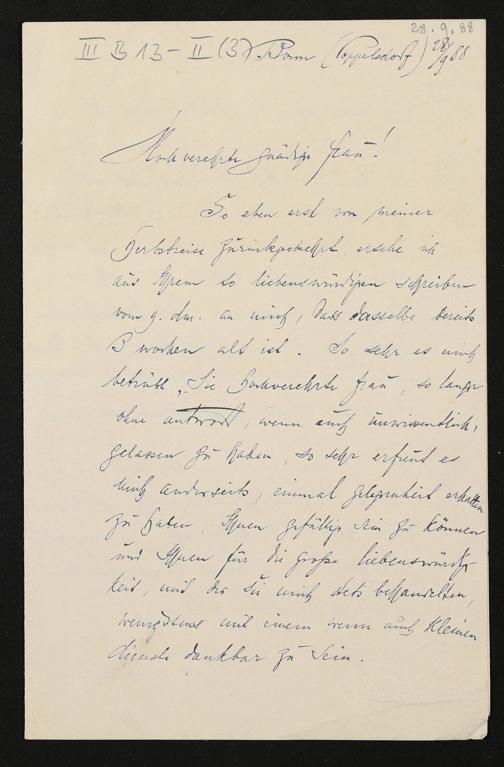 28.9.88
III B 13 – II (3) Bonn (Poppelsdorf) 28/9 88
Hochverehrte gnädige Frau!
So eben erst von meiner
Herbstreise zurückgekehrt, ersehe ich
aus Ihrem so liebenswürdigen Schreiben
vom 9. dm. an mich, dass dasselbe bereits
3 Wochen alt ist. So sehr es mich
betrübt, Sie Hochverehrte Frau, so lange
ohne Antwort, wenn auch unwissentlich,
gelassen zu haben, so sehr erfreut es
mich anderseits, einmal Gelegenheit erhalten
zu haben, Ihnen gefällig sein zu können
und Ihnen für die große Liebenswürdig-
keit, mit der Sie mich stets behandelten,
wenigstens mit einem wenn auch kleinen
Dienste dankbar zu sein.